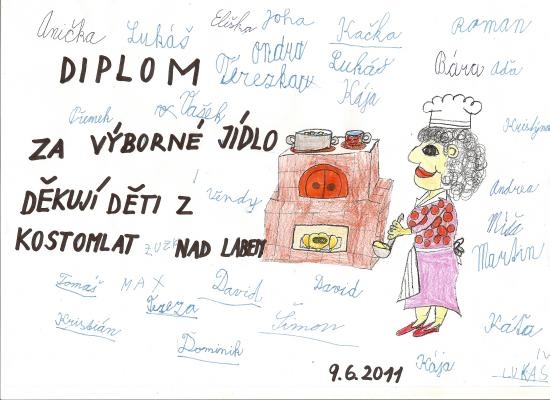 Anička Lukáš Eliška Joha Kačka Roman
Ondra Lukáš Bára Áďa
DIPLOM Terezka Kája
Přemek Vašek Kristýna
ZA VÝBORNÉ JÍDLO
DĚKUJÍ DĚTI Z Vendy Andrea
KOSTOMLAT ZUZK NAD LABEM Míša
Martin
Tomáš MAX David David
Tereza
Kristián Šimon Káťa
Dominik
9.6.2011 Kája LUKÁŠ